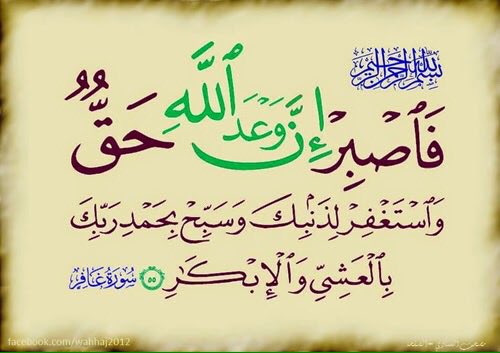 بسم الله الرحمن الرحيم
فَٱصۡبِرۡ إِنَّ وَعۡدَ ٱللَّهِ حَقّٞ
وَٱسۡتَغۡفِرۡ لِذَنۢبِكَ وَسَبِّحۡ بِحَمۡدِ رَبِّكَ
بِٱلۡعَشِيِّ وَٱلۡإِبۡكَٰرِ ٥٥ سُورَةُ غَافِرٍ
facebook.com/wahhaj2012